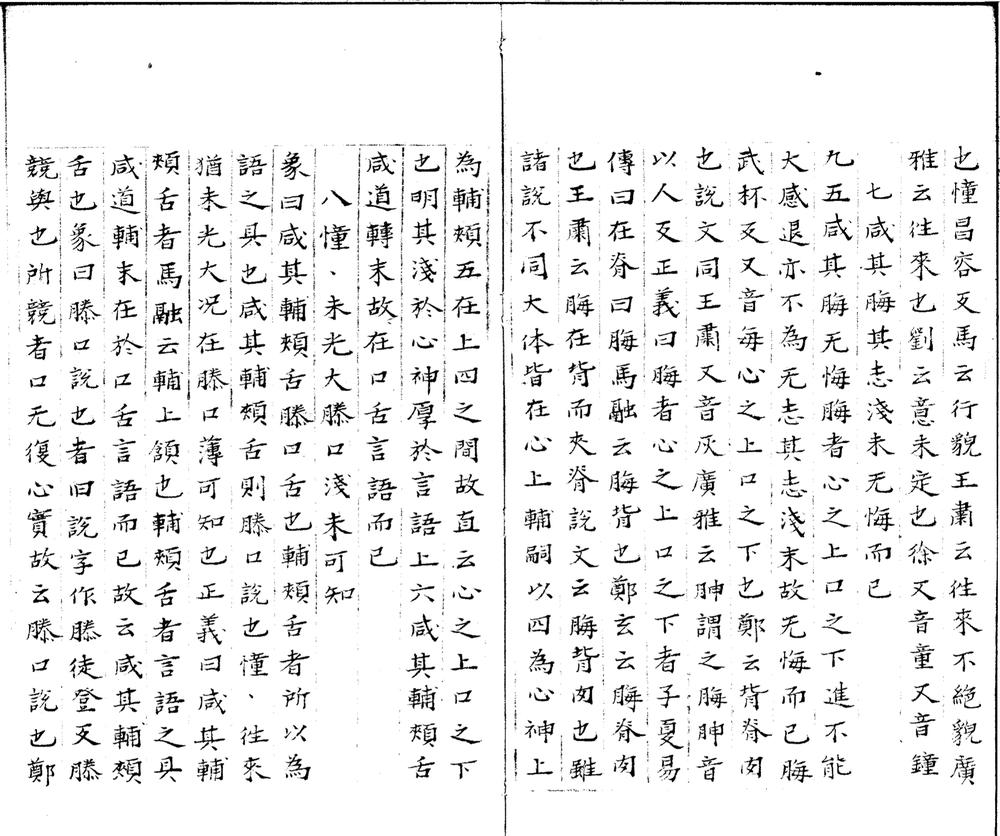 也憧昌容反馬云行貌王肅云往来不絶貌廣
雅云往來也劉云意未定也徐又音童又音鐘
七咸其脢其志淺未无悔而已
九五咸其脢无悔脢者心之上口之下進不能
大感退亦不為无志其志淺末故无悔而已脢
武杯反又音每心之上口之下也鄭云背脊肉
也說文同王肅又音灰廣雅云胂謂之脢胂音
以人反正義曰脢者心之上口之下者子夏易
傳曰在脊曰脢馬融云脢背也鄭玄云脢脊肉
也王肅云脢在背而夾脊說文云脢背肉也雖
諸說不同大体皆在心上輔嗣以四為心神上
為輔頰五在上四之間故直云心之上口之下
也明其淺於心神厚於言語上六咸其輔頰舌
咸道轉末故在口舌言語而已
八憧、未光大滕口淺未可知
象曰咸其輔頰舌滕口舌也輔頰舌者所以為
語之具也咸其輔頰舌則滕口說也憧、往來
猶未光大况在滕口薄可知也正義曰咸其輔
頰舌者馬融云輔上頷也輔頰舌者言語之具
咸道輔末在於口舌言語而已故云咸其輔頰
舌也象曰滕口說也者旧說字作滕徒登反滕
競與也所競者口无復心實故云滕口說也鄭